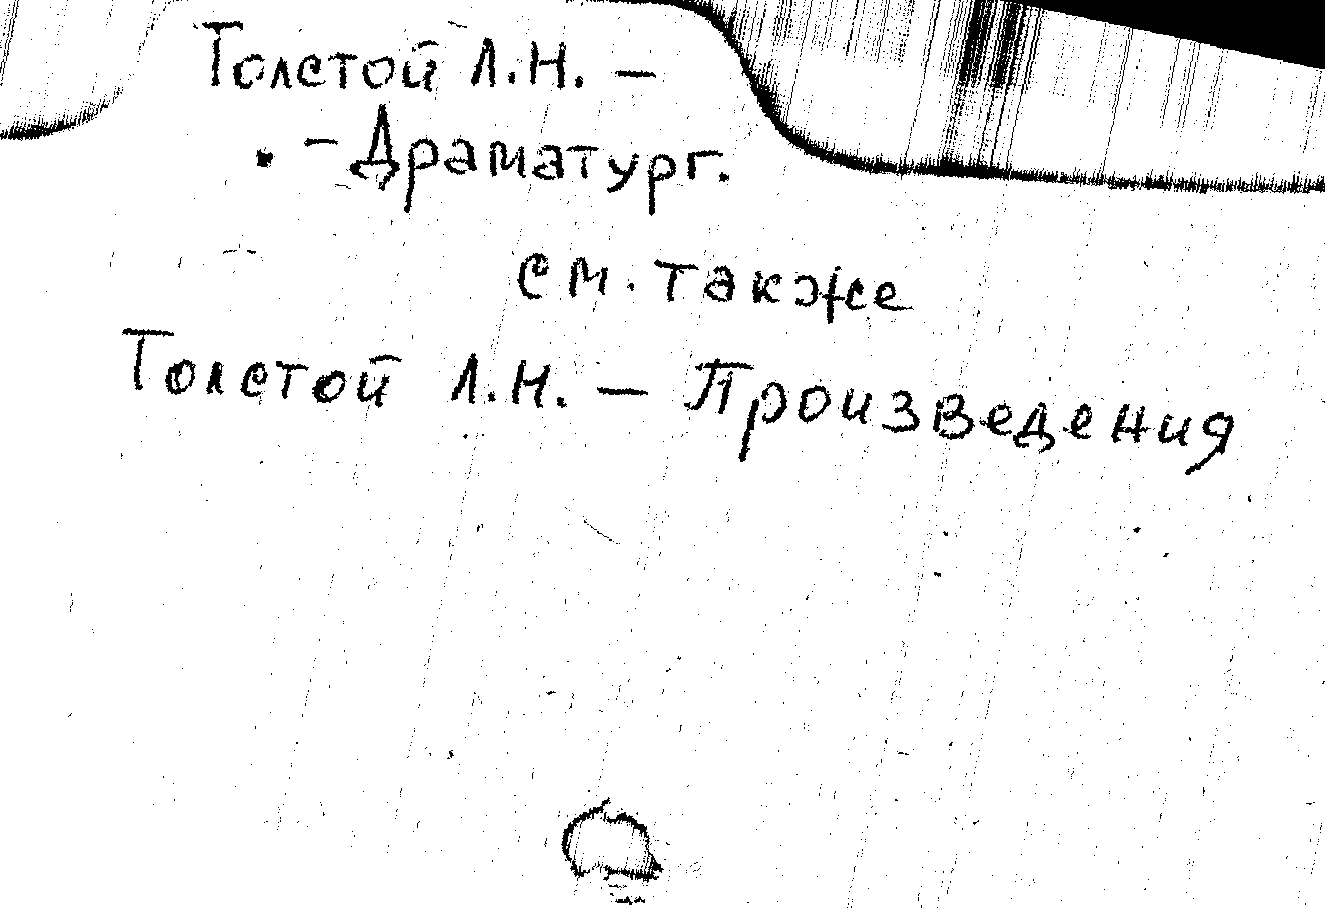 Толстой Л.Н. —
- Драматург.
см. также
Толстой Л.Н. — Произведения